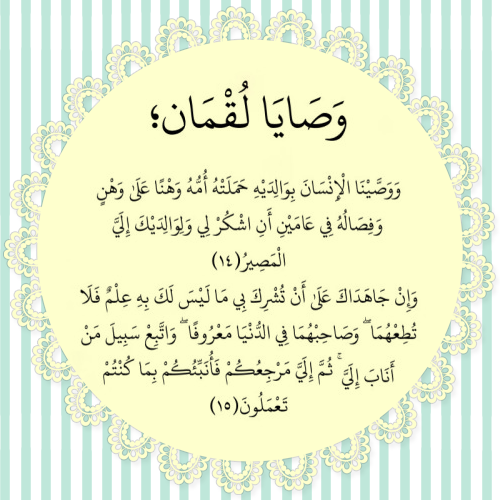 وَصَايَا لُقْمَان؛
وَوَصَّيْنَا الْإِنْسَانَ بِوَالِدَيْهِ حَمَلَتْهُ أُمُّهُ وَهْنًا عَلَىٰ وَهْنٍ
وَفِصَالُهُ فِي عَامَيْنِ أَنِ اشْكُرْ لِي وَلِوَالِدَيْكَ إِلَيَّ
الْمَصِيرُ(١٤)
وَإِنْ جَاهَدَاكَ عَلَىٰ أَنْ تُشْرِكَ بِي مَا لَيْسَ لَكَ بِهِ عِلْمٌ فَلَا
تُطِعْهُمَا ۖ وَصَاحِبْهُمَا فِي الدُّنْيَا مَعْرُوفًا ۖ وَاتَّبِعْ سَبِيلَ مَنْ
أَنَابَ إِلَيَّ ۚ ثُمَّ إِلَيَّ مَرْجِعُكُمْ فَأُنَبِّئُكُمْ بِمَا كُنْتُمْ
تَعْمَلُونَ(١٥)